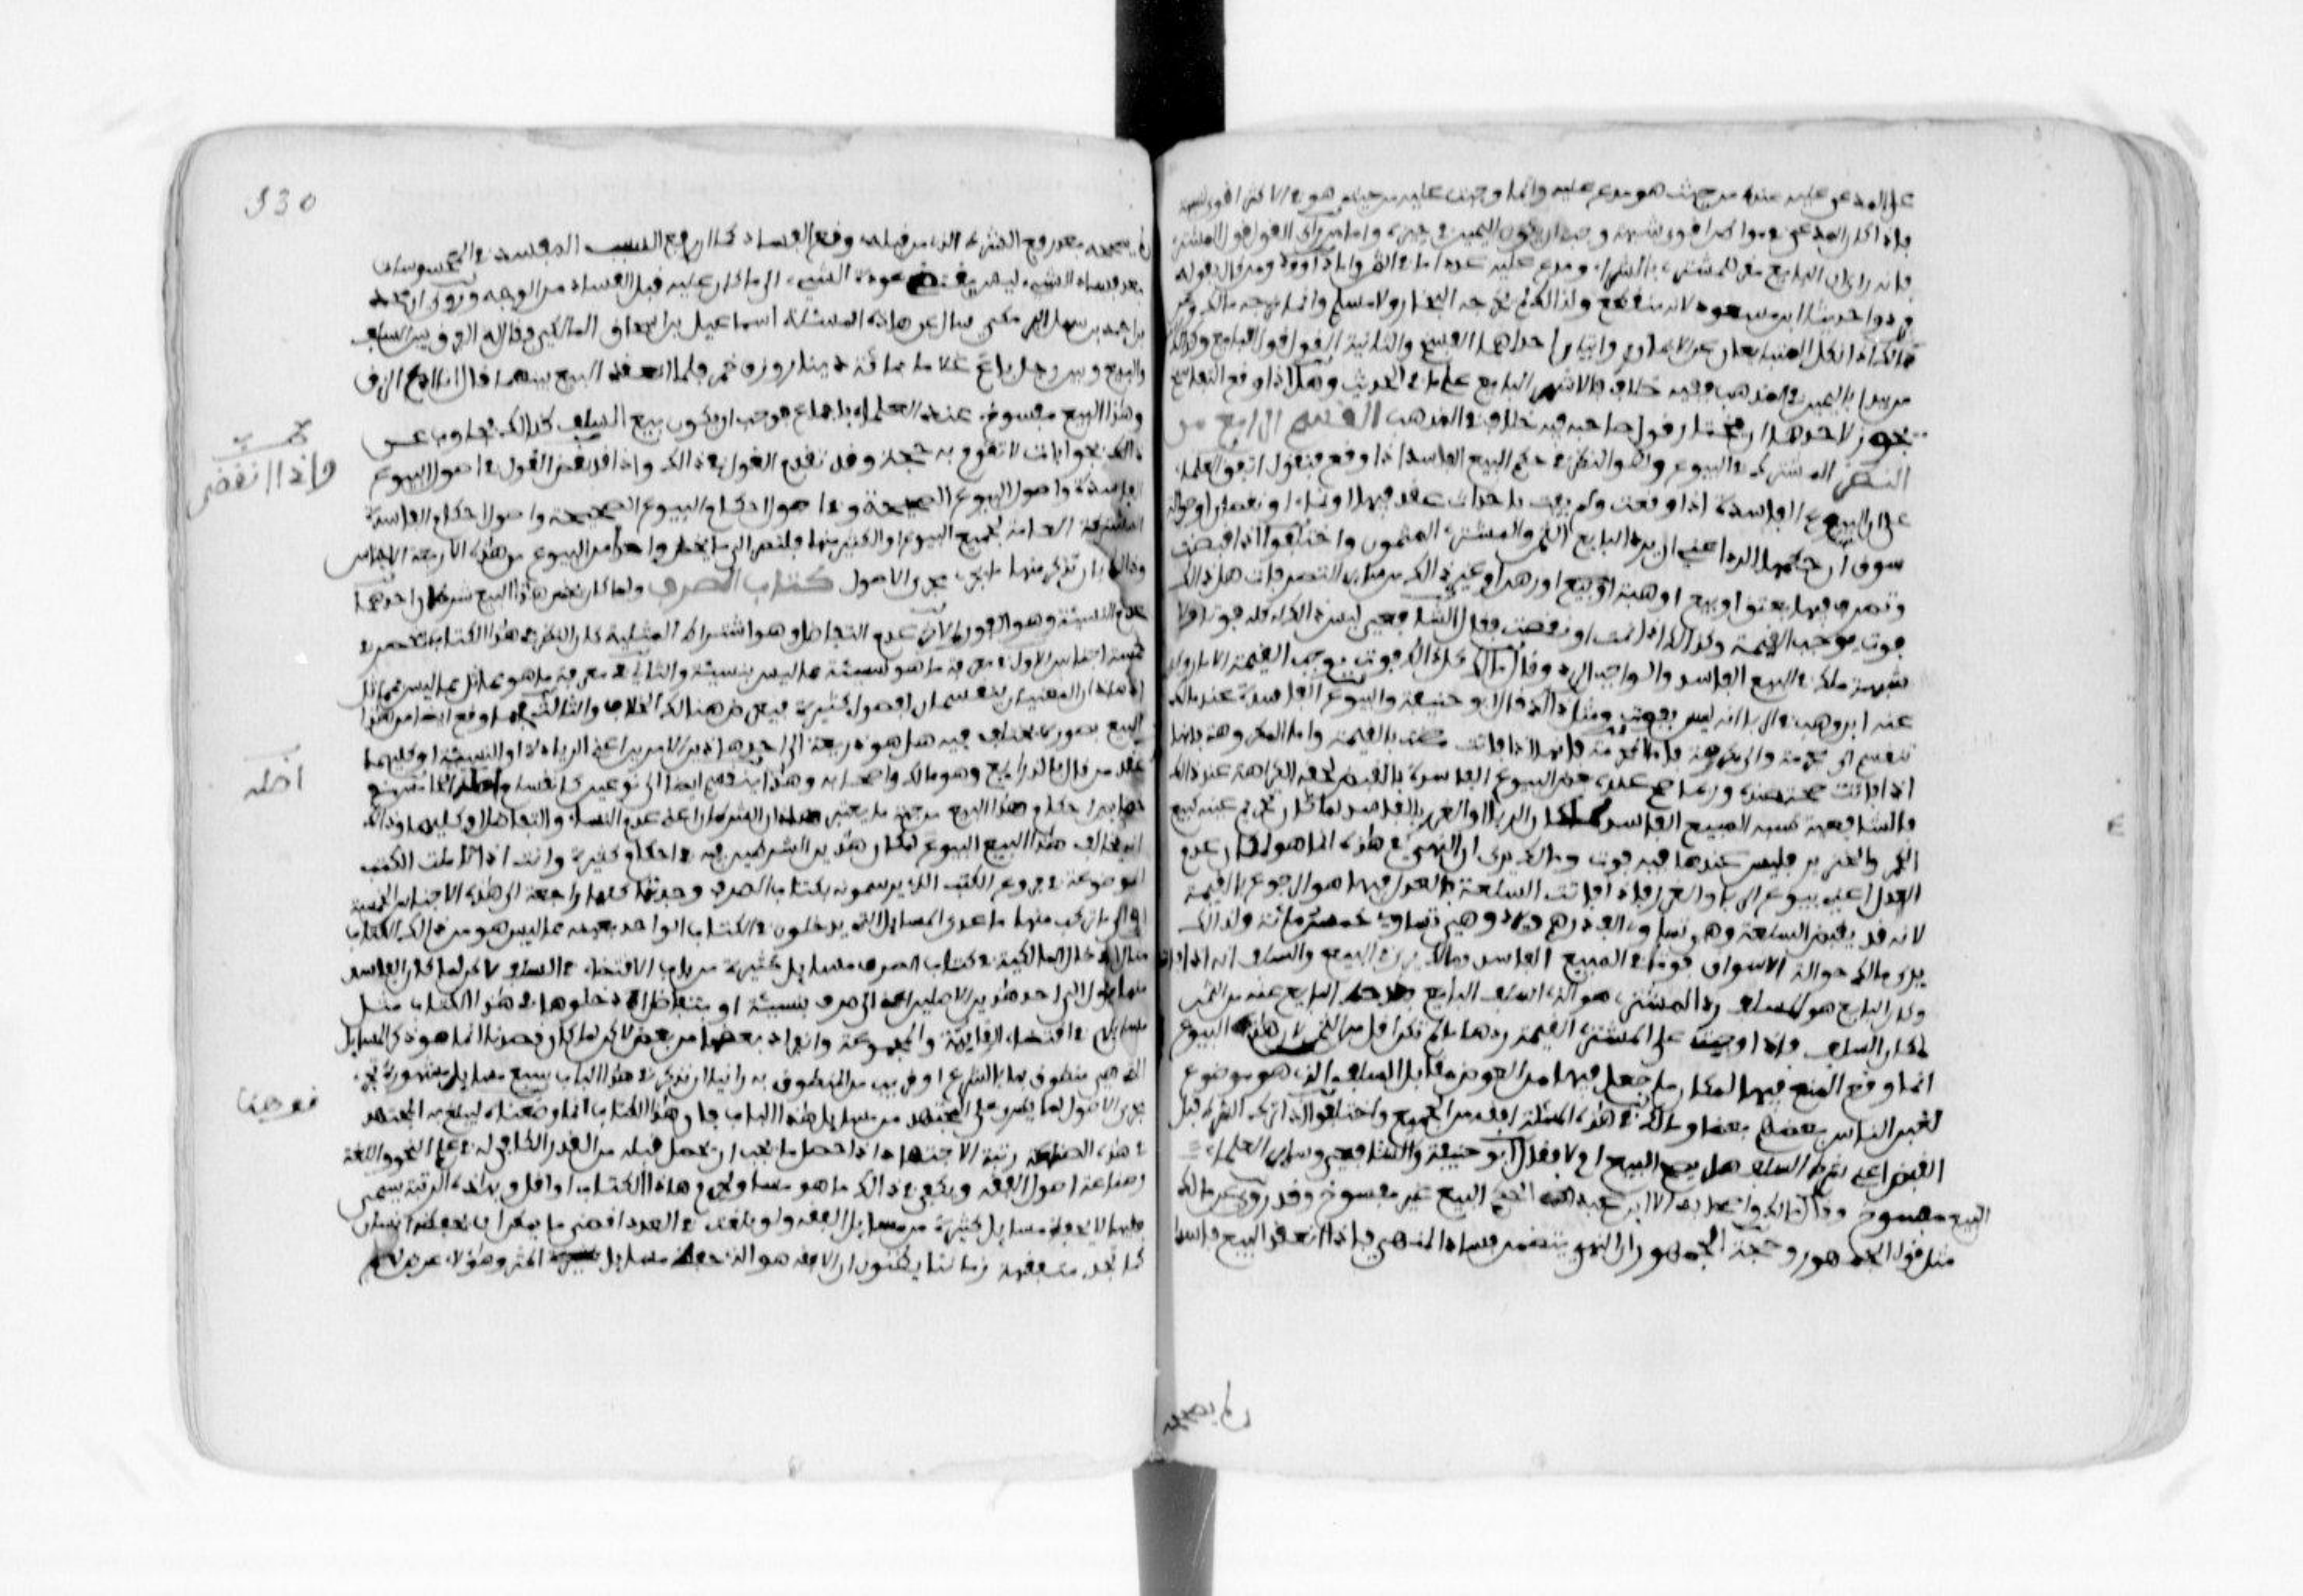 على المدعى عليه عنده من حيث هو مدعى عليه وانما وجبت عليه من حيث هو في الاكثر اقوى شبهة
فاذا كان المدعي في مواضع اقوى شبهة وجب ان يكون اليمين في حيزه واما من راى القول قول المشتري
فانه راى ان البايع مقر للمشتري بالشراء ومدع عليه عددا ما في الثمن واما داوود ومن قال بقوله
فردوا حديث ابن مسعود لانه منقطع ولذالك لم يخرجه البخاري ولا مسلم وانما خرجه مالك وعن
مالك اذا نكل المتبايعان عن الايمان روايتان احداهما الفسخ والثانية ان القول قول البايع وكذالك
من يبدا باليمين في المذهب فيه خلاف فالاشهر البايع على ما في الحديث وهل اذا وقع التفاسخ
يجوز لاحدهما ان يختار قول صاحبه فيه خلاف في المذهب القسم الرابع من
النظر المشترك في البيوع وهو النظر في حكم البيع الفاسد اذا وقع فنقول اتفق العلماء
على ان البيوع الفاسدة اذا وقعت ولم تفت باحداث عقد فيها او نماء او نقصان او حوالة
سوق ان حكمها الرد اعني ان يرد البايع الثمن والمشتري المثمون واختلفوا اذا قبضت
وتصرف فيها بعتق او بيع او هبة او بيع او رهن او غير ذالك من ساير التصرفات هل ذالك
فوت يوجب القيمة وكذالك اذا نمت او نقصت فقال الشافعي ليس ذالك كله فوتا ولا
شبهة ملك في البيع الفاسد والواجب الرد وقال مالك كل ذالك فوت يوجب القيمة الا ما روى
عنه ابن وهب في الربا انه ليس بفوت ومثل ذالك قال ابو حنيفة والبيوع الفاسدة عند مالك
تنقسم الى محرمة والى مكروهة فاما المحرمة فانها اذا فاتت مضت بالقيمة واما المكروهة فانها
اذا فاتت صحت عنده وربما صح عنده بعض البيوع الفاسدة بالقبض لخفة الكراهة عنده في ذالك
فالشافعية تشبه المبيع الفاسد لمكان الربا والغرر بالفاسد لمكان تحريم عينه كبيع
الخمر والخنزير فليس عندها فيه فوت ومالك يرى ان النهي في هذه انما هو لمكان عدم
العدل اعني بيوع الربا والغرر فاذا فاتت السلعة فالعدل فيها هو الرجوع بالقيمة
لانه قد يقبض السلعة وهي تساوي الف درهم ويردها وهي تساوي خمس مائة ولذالك
يرى مالك حوالة الاسواق فوتا في المبيع الفاسد ومالك يرى في البيع والسلف انه اذا فات
وكان البايع هو المسلف رد المشتري
لمكان السلف فاذا وجبت على المشتري القيمة ردها ما لم تكن اقل من الثمن لان هذه البيوع
انما وقع المنع فيها لمكان ما جعل فيها من العوض مقابل السلف الذي هو موضوع
لعون الناس بعضهم بعضا ومالك في هذه المسئلة افقه من الجميع واختلفوا اذا ترك الشرط قبل
القبض اعني شرط السلف هل يصح البيع ام لا فقال ابو حنيفة والشافعي وساير العلماء
البيع مفسوخ وقال مالك واصحابه الا ابن عبد الحكم البيع غير مفسوخ وقد روي عن مالك
مثل قول الجمهور وحجة الجمهور ان النهي يتضمن فساد المنهي فاذا انعقد البيع فاسدا
لم يصححه
330
لم يصححه بعد رفع الشرط الذي من قبله وقع الفساد كما ان رفع السبب المفسد في المحسوسات
بعد فساد الشيء ليس يقتضي عودة الشيء الى ما كان عليه قبل الفساد من الوجود وروي ان محمد
بن احمد بن سهل البرمكي سال عن هاذه المسئلة اسماعيل بن اسحاق المالكي فقال له الفرق بين السلف
والبيع وبين رجل باع غلاما بمائة دينار وزق خمر فلما انعقد البيع بينهما قال انا ادع الزق
وهذا البيع مفسوخ عند العلماء باجماع فوجب ان يكون بيع السلف كذالك فجاوب عن
ذالك بجوابات لا تقوم به حجة وقد تقدم القول في ذالك واذا قد نقض القول في اصول البيوع
محبس
واذ انقضى
الفاسدة واصول البيوع الصحيحة وفي اصول احكام البيوع الصحيحة واصول احكام الفاسدة
المشتركة العامة لجميع البيوع او الكثير منها فلنصر الى ما يخص واحدا من البيوع من هذه الاربعة الاجناس
وذالك بان نذكر منها ما يجري مجرى الاصول كتاب الصرف ولما كان يخص هاذا البيع شرطان احدهما
عدم النسيئة وهو الفور والاخر عدم التفاضل وهو اشتراك المثلية كان النظر في هذا الكتاب ينحصر في
خمسة اجناس الاول في معرفة ما هو نسيئة مما ليس بنسيئة والثاني في معرفة ما هو مماثل مما ليس بمماثل
اذ هاذان القسمان ينقسمان بفصول كثيرة فيعرض هنالك الخلاف والثالث فيما وقع ايضا من هذا
البيع بصورة مختلف فيه هل هو ذريعة الى احد هاذين الامرين اعني الزيادة او النسيئة او كليهما
عند من قال بالذرايع وهو مالك واصحابه وهذا ينقسم ايضا الى نوعين كانقسام اصله الخامس في
اصله
خصايص احكام هذا البيع من جهة ما يعتبر هذان الشرطان اعني عدم النساء والتفاضل او كليهما وذالك
انه يخالف هذا البيع البيوع لمكان هذين الشرطين فيه في احكام كثيرة وانت اذا تاملت الكتب
الموضوعة في فروع الكتب الذي يرسمونه بكتاب الصرف وجدتها كلها راجعة الى هذه الاجناس الخمسة
او الى ما تركب منها ما عدى المسايل التي يدخلون في الكتاب الواحد بعينه مما ليس هو من ذالك الكتاب
مثل ادخال المالكية في كتاب الصرف مسايل كثيرة من باب الاقتضاء في السلف لاكن لما كان الفاسد
منها يؤول الى احد هذين الاصلين اعني الى صرف بنسيئة او بتفاضل ادخلوها في هذا الكتاب مثل
مسايلهم في اقتضاء القايمة والمجموعة والفراد بعضها من بعض لاكن لما كان قصدنا انما هو ذكر المسايل
التي هي منطوق بها بالشرع او قريب من المنطوق به راينا ان نذكر في هذا الباب سبع مسايل مشهورة تجري
مجرى الاصول لما يطرا على المجتهد من مسايل هذا الباب فان هذا الكتاب انما وضعناه ليبلغ به المجتهد
فوصعنا
في هذه الصناعة رتبة الاجتهاد اذا حصل ما يجب ان يحصل قبله من القدر الكافي له في علم النحو واللغة
وصناعة اصول الفقه ويكفي في ذالك ما هو مساو لجرم هاذا الكتاب او اقل وبهاذه الرتبة يسمى
فقيها لا بحفظ مسايل كثيرة من مسايل الفقه ولو بلغت في العدد اقصى ما يمكن ان يحفظه انسان
كما نجد متفقهة زماننا يظنون ان الافقه هو الذي حفظ مسايل اكثر وهؤلاء عرض لهم